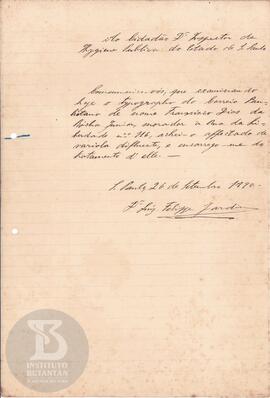 Ao Cidadão Dr Inspector de
Hygiene Publica do Estado de S. Paulo
Communico-vos, que examinando
hoje o typographo do Correio Pau-
listano de nome Francisco Dias da
Rocha Junior morador a Rua da Li-
berdade nº 116, achei-o affectado de
variola, e encarrego-me do
tratamento d'elle.
S. Paulo, 26 de Setembro 1890
Dr Luiz Felippe Jardim
INSTITUTO
BUTANTAN